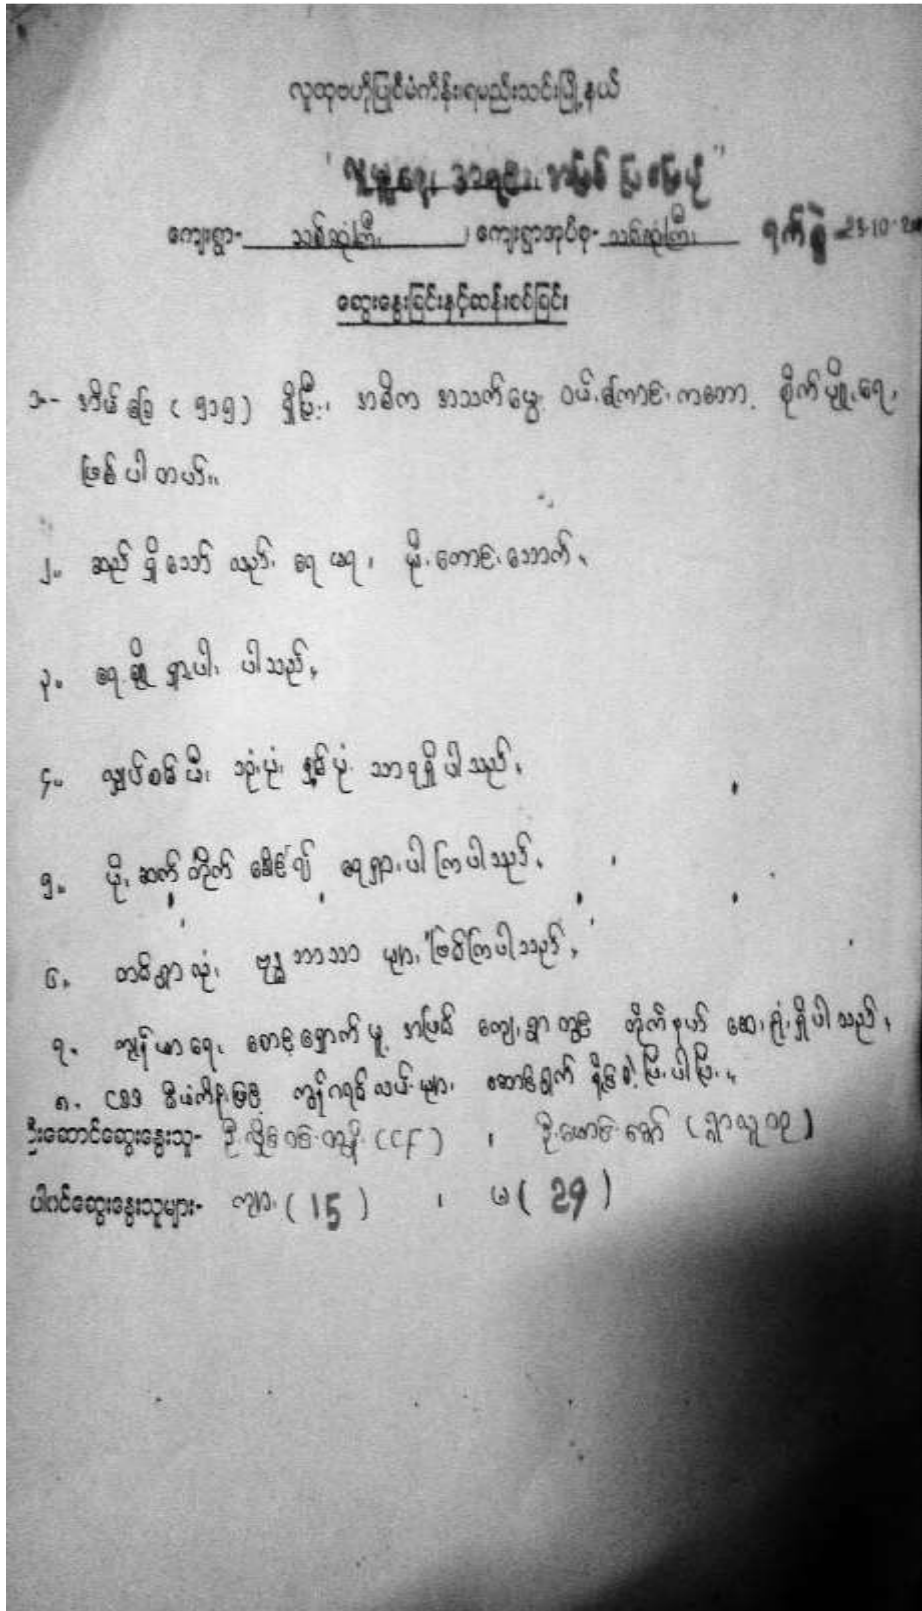 လူထုဗဟိုပြုစီမံကိန်း၊ရမည်းသင်းမြို့နယ်
"လူမှုရေး၊ အခြေပြ မြေပုံ"
ကျေးရွာ- သစ်ဆုံကြီး ၊ ကျေးရွာအုပ်စု- သစ်ဆုံကြီး ရက်စွဲ 25-10-
ဆွေးနွေးခြင်းနှင့်ဆန်းစစ်ခြင်း
၁-- အိမ်ခြေ (၅၁၅) ရှိပြီး၊ အဓိက အသက်မွေး ဝမ်းကြောင်းကတော့ စိုက်ပျိုးရေး
ဖြစ်ပါတယ်။
၂။ ဆည် ရှိသော် လည်း ရေ မရ၊ မိုးကောင်းသောက်၊
၃။ ရေချို ရှားပါး ပါသည်၊
၄။ လျှပ်စစ်မီး သုံးပုံ၊ နှစ်ပုံ သာရရှိပါသည်၊
၅။ မိုးဆက်တိုက် ခေါင်၍ ရေရှားပါးကြပါသည်၊
၆။ တစ်ရွာလုံး ဗုဒ္ဓဘာသာ များဖြစ်ကြပါသည်၊
၇။ ကျန်းမာရေး စောင့်ရှောက်မှု့ အဖြစ် ကျေးရွာတွင် တိုက်နယ် ဆေးရုံရှိပါသည်၊
၈။ CDD စီမံကိန်းဖြင့် ကွန်ကရစ်လမ်းများ ဆောင်ရွက် နိုင်ခဲ့ပြီးပါပြီ၊
ဦးဆောင်ဆွေးနွေးသူ- ဦးလှိုင်ဝင်းထွန်း (CF) ၊ ဦးအောင်ကျော် (ရွာသူ
ပါဝင်ဆွေးနွေးသူများ- ကျား (15) ၊ မ (29)